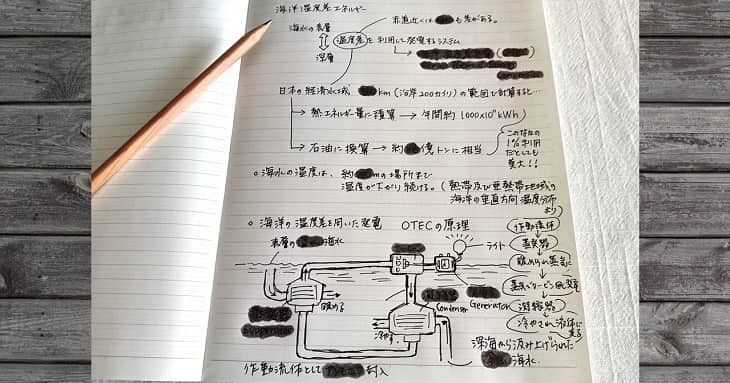 海洋温度差エネルギー
赤道近くは も差がある。
海水の表層
↕
深層
温度差を利用して発電するシステム
日本の経済水域 km(沿岸200カイリ)の範囲で計算すると…
→熱エネルギー量に積算→年間約1000×10 kWh
→石油に換算→約 億トンに相当
このなかの
1%利用
だとしても
莫大!!
○海水の温度は、約 mの場所まで
温度が下がり続ける。(熱帯及び亜熱帯地域の
海洋の垂直方向温度分布
より)
○海洋の温度差を用いた発電 OTECの原理
表層の 海水
ライト
Generator
Condenser
暖める
冷やす
作動流体
蒸発器
暖められ蒸気に
蒸気でタービン
凝縮器
冷やされ液体に
深海から汲み上げられた
海水
作動流体として 封入